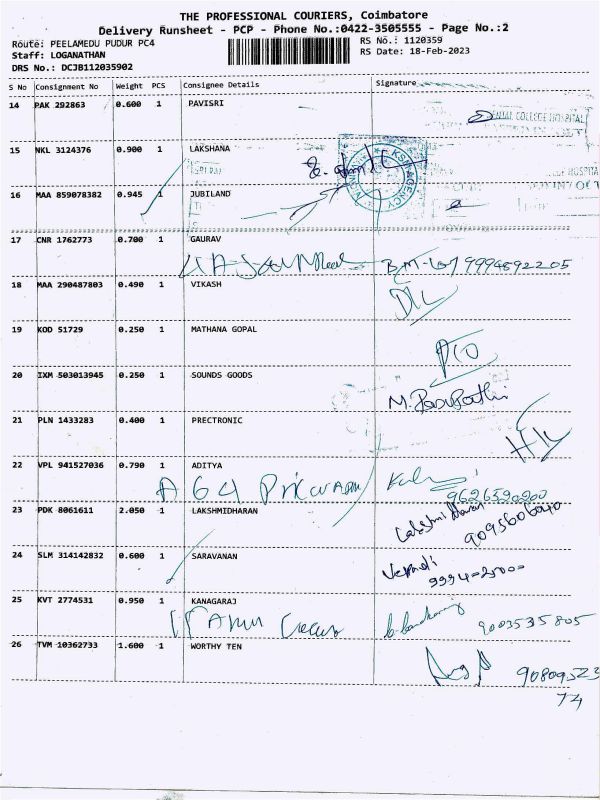 THE PROFESSIONAL COURIERS, Coimbatore
Delivery Runsheet - PCP - Phone No.:0422-3505555 - Page No.:2
Route: PEELAMEDU PUDUR PC4
RS No.: 1120359
Staff: LOGANATHAN
RS Date: 18-Feb-2023
DRS No.: DCJB112035902
S No Consignment No Weight PCS Consignee Details Signature
14 PAK 292863 0.600 1 PAVISRI
DENTAL COLLEGE HOSPITAL
15 NKL 3124376 0.900 1 LAKSHANA
KSM AGENCY
16 MAA 859078382 0.945 1 JUBILAND
17 CNR 1762773 0.700 1 GAURAV
9994892205
18 MAA 290487803 0.490 1 VIKASH
19 KOD 51729 0.250 1 MATHANA GOPAL
20 IXM 503013945 0.250 1 SOUNDS GOODS
21 PLN 1433283 0.400 1 PRECTRONIC
22 VPL 941527036 0.790 1 ADITYA
A 64
23 PDK 8061611 2.050 1 LAKSHMIDHARAN
Lakshmidharan
9095606040
24 SLM 314142832 0.600 1 SARAVANAN
25 KVT 2774531 0.950 1 KANAGARAJ
9003535805
26 TVM 10362733 1.600 1 WORTHY TEN
90809523
74